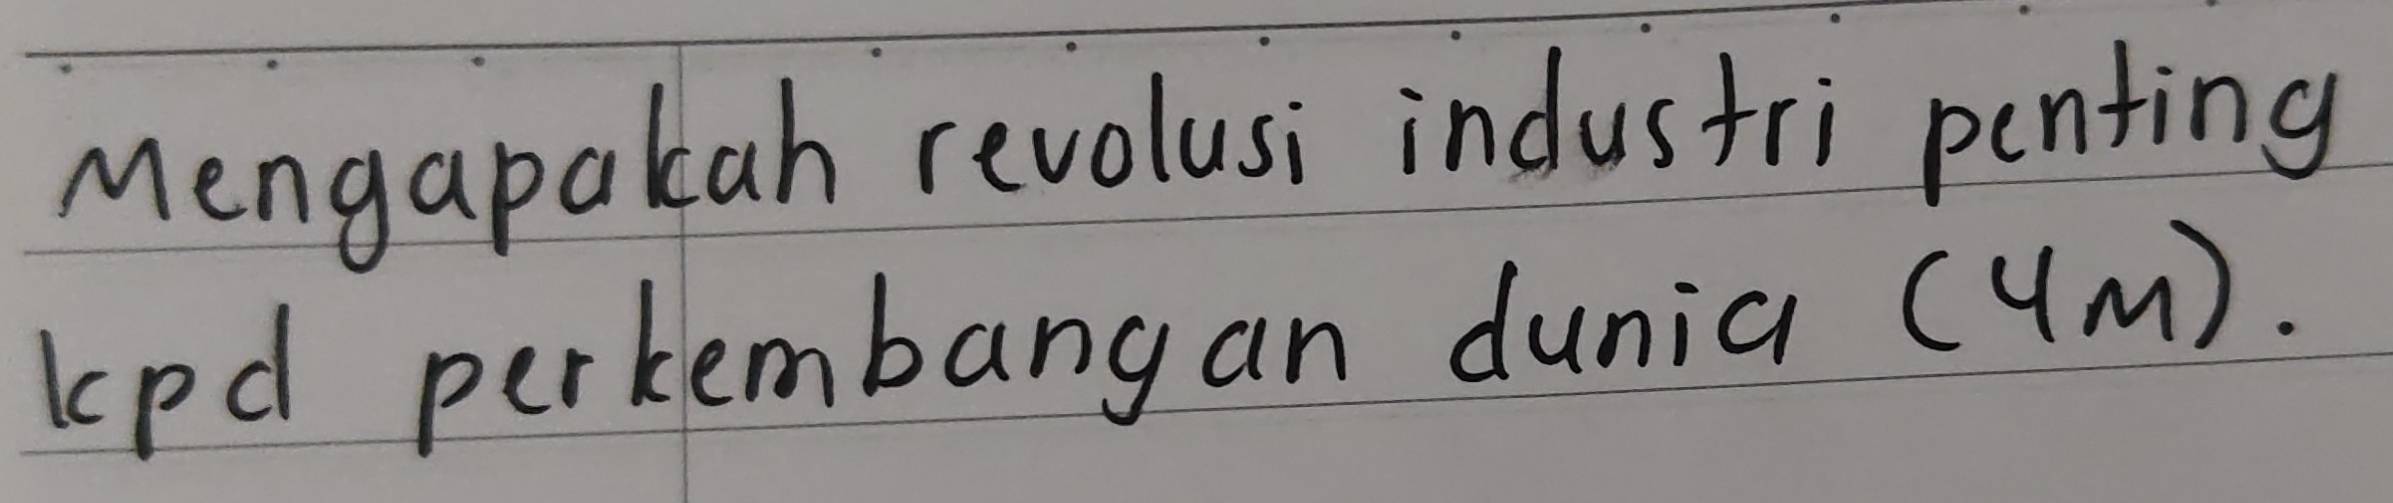 Mengapakah revolusi industri penting
kpd perkembangan dunia (4M).